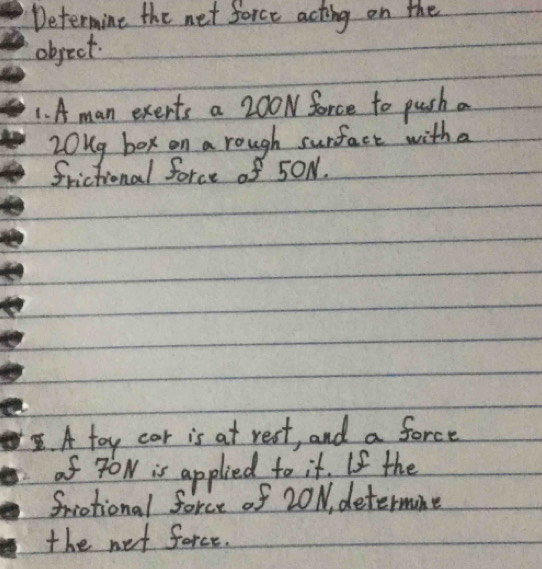 Determine the net force acting on the
object.
1. A man exerts a 200N force to push a
20Kg box on a rough surface with a
frictional force of 50N.
2. A toy car is at rest, and a force
of 70N is applied to it. If the
frictional force of 20N, determine
the net force.